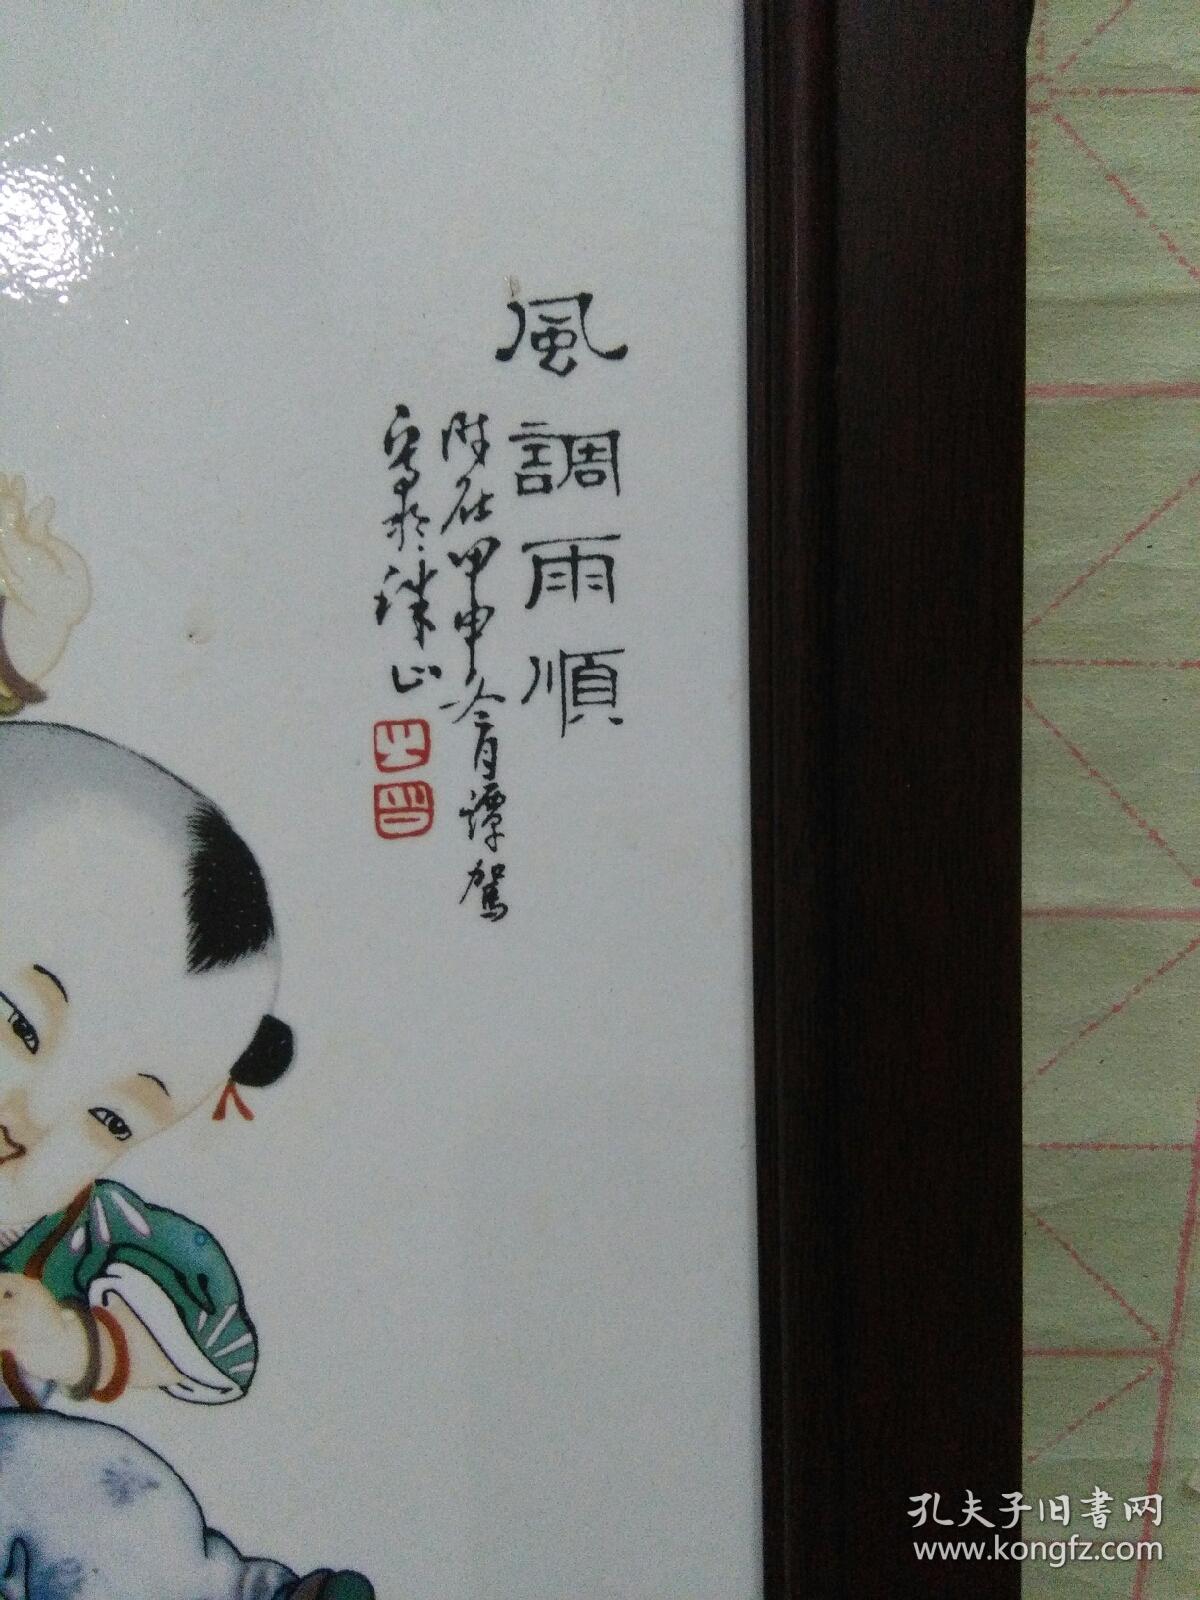 風調雨順
時在甲申冬月譚駕
寫於珠山
孔夫子旧書网
www.kongfz.com